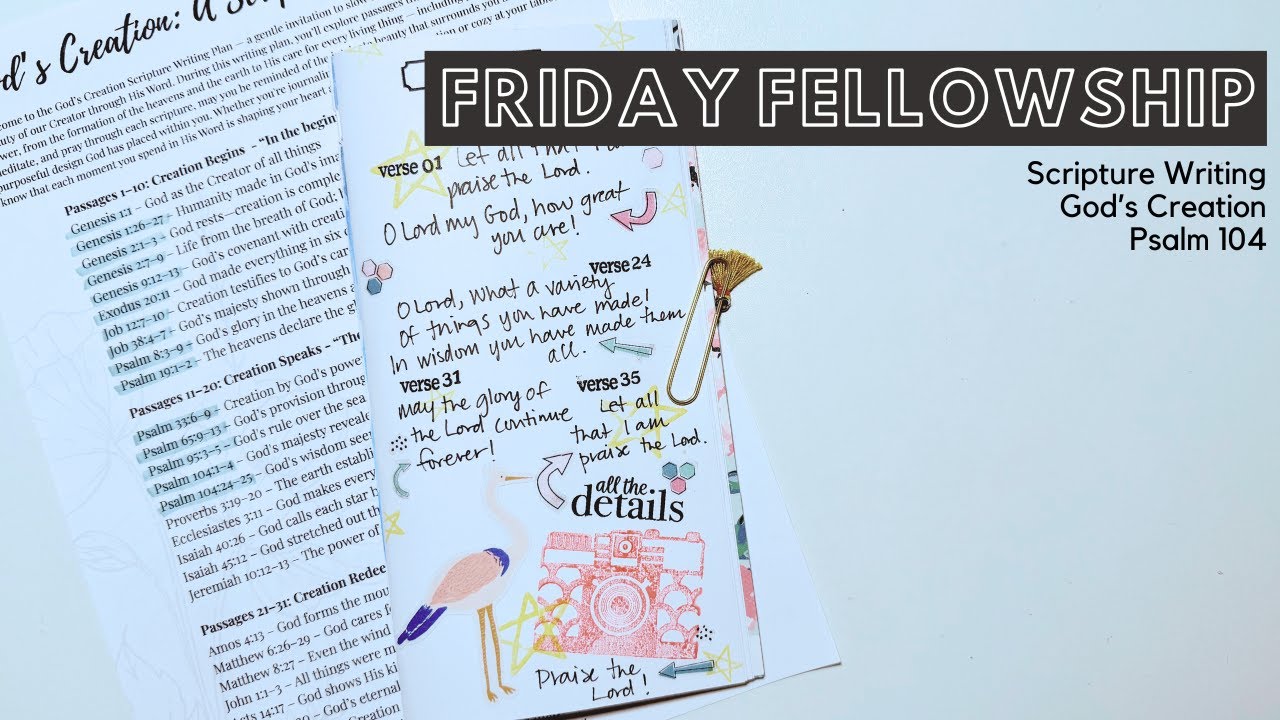 FRIDAY FELLOWSHIP
Scripture Writing
God's Creation
Psalm 104
God's Creation: A
come to the God's Creation Scripture Writing Plan — a gentle invitation to slow
of our Creator through His Word. During this writing plan, you'll explore passages
from the formation of the heavens and the earth to His care for every living thing — including
meditate, and pray through each scripture, may you be reminded of the beauty that surrounds you
purposeful design God has placed within you. Whether you're
know that each moment you spend in His Word is shaping your heart
or cozy at your
Passages 1–10: Creation Begins – "In the
Genesis 1:1 – God as the Creator of all things
Genesis 1:26–27 – Humanity made in God's
Genesis 2:1–3 – God rests—creation is
Genesis 2:7–9 – Life from the breath of God;
Genesis 9:12–13 – God's covenant with
Exodus 20:11 – God made everything in six
Job 12:7–10 – Creation testifies to God's
Job 38:4–7 – God's majesty shown through
Psalm 8:3–9 – God's glory in the heavens
Psalm 19:1–2 – The heavens declare the
Passages 11–20: Creation Speaks –
Psalm 33:6–9 – Creation by God's
Psalm 65:9–13 – God's provision
Psalm 95:3–5 – God's rule over the sea
Psalm 104:1–4 – God's majesty
Psalm 104:24–25 – God's wisdom
Proverbs 3:19–20 – The earth
Ecclesiastes 3:11 – God makes
Isaiah 40:26 – God calls each star
Isaiah 45:12 – God stretched out
Jeremiah 10:12–13 – The power of
Passages 21–31: Creation
Amos 4:13 – God forms the
Matthew 6:26–29 – God cares
Matthew 8:27 – Even the wind
John 1:1–3 – All things were
14:17 – God shows His
God's
God's Creation
verse 01
Let all that I
praise the Lord.
O Lord my God, how great
you are!
verse 24
O Lord, what a variety
of things you have made!
In wisdom you have made them
all.
verse 31
may the glory of
the Lord continue
forever!
verse 35
Let all
that I am
praise the Lord.
all the
details
Praise the
Lord!